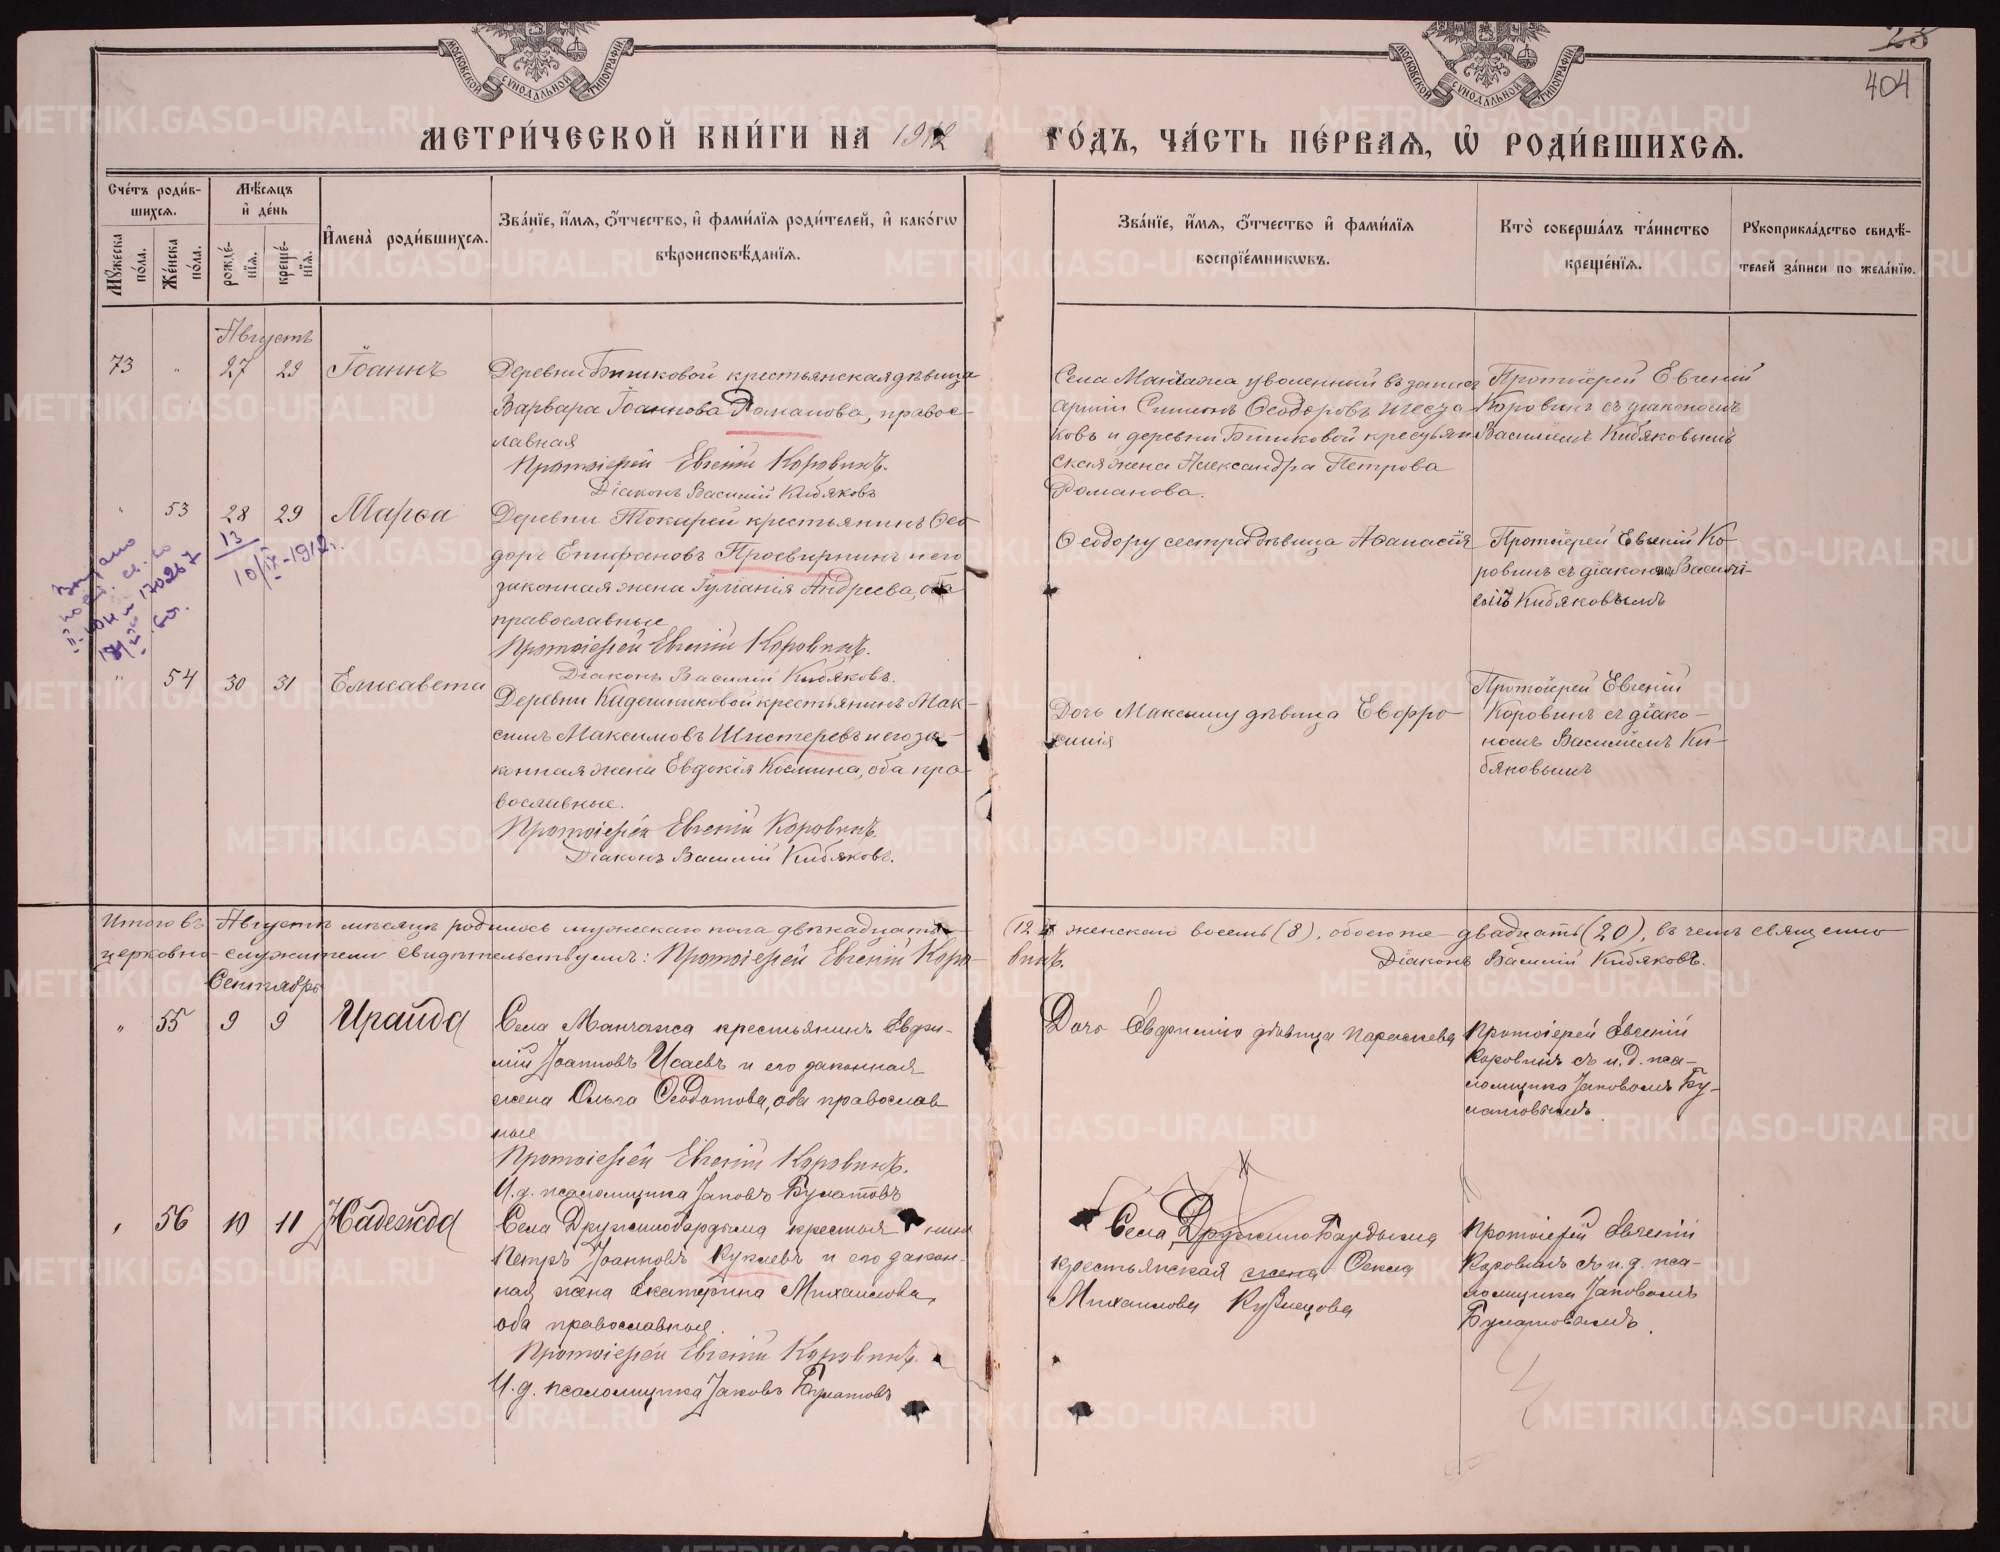 25
404
МОСКОВСКОЙ СУНОДАЛЬНОЙ ТИПОГРАФІИ
МОСКОВСКОЙ СУНОДАЛЬНОЙ ТИПОГРАФІИ
МЕТРИ́ЧЕСКОЙ КНИ́ГИ НА 1912 ГО́ДЪ, ЧА́СТЬ ПЕ́РВАѦ, Ѽ РОДИ́ВШИХСѦ.
Сче́тъ роди́в-
шихсѧ.
Мꙋ́жеска по́ла.
Же́нска по́ла.
Мѣ́сѧцъ
и҆ де́нь
рожде́-
нїѧ.
креще́-
нїѧ.
И҆мена̀ роди́вшихсѧ.
Зва́нїе, и҆́мѧ, ѻ҆́тчество, и҆ фами́лїѧ роди́телей, и҆ како́гѡ
вѣроисповѣ́данїѧ.
Зва́нїе, и҆́мѧ, ѻ҆́тчество и҆ фами́лїѧ
воспрїе́мникѡвъ.
Кто̀ соверша́лъ та́инство
креще́нїѧ.
Рꙋкоприкла́дство свидѣ́-
телей за́писи по жела́нїю.
Августъ
73 " 27 29 Іоаннъ
Деревни Бишковой крестьянская дѣвица
Варвара Іоаннова Романова, правос-
лавная
Протоіерей Евгеній Коровинъ.
Діаконъ Василій Кибяковъ
Села Манчажа уволенный въ запасъ
арміи Симеонъ Ѳеодоровъ Шесза
ковъ и деревни Бишковой крестьян
ская жена Александра Петрова
Романова.
Протоіерей Евгеній
Коровинъ съ діакономъ
Василіемъ Кибяковымъ
" 53 28 29 Марѳа
13
10/IX-1912г.
Деревни Токарей крестьянинъ Ѳео
доръ Епифановъ Просвирнинъ и его
законная жена Іуліанія Андреева, оба
православные
Протоіерей Евгеній Коровинъ.
Діаконъ Василій Кибяковъ.
Ѳеодору сестра дѣвица Аѳанасія
Протоіерей Евгеній Ко-
ровинъ съ діакономъ Василі-
емъ Кибяковымъ
" 54 30 31 Елисавета
Деревни Кадешниковой крестьянинъ Мак-
симъ Максимовъ Шистеревъ и его за-
конная жена Евдокія Космина, оба пра-
вославные.
Протоіерей Евгеній Коровинъ.
Діаконъ Василій Кибяковъ.
Дочь Максиму дѣвица Евфро-
синія
Протоіерей Евгеній
Коровинъ съ діако-
номъ Василіемъ Ки-
бяковымъ
Итого въ Августѣ мѣсяцѣ родилось мужескаго пола двѣнадцать (12) женскаго восемь (8), обоего же двадцать (20), въ чемъ священно
церковно-служители свидѣтельствуемъ: Протоіерей Евгеній Коровинъ. Діаконъ Василій Кибяковъ.
Сентябрь
" 55 9 9 Ираида
Села Манчажа крестьянинъ Евфи-
мій Іоанновъ Исаевъ и его законная
жена Ольга Ѳеодотова, оба православ
ные
Протоіерей Евгеній Коровинъ.
И.д. псаломщика Іаковъ Булатовъ
Дочь Евфимію дѣвица Параскева
Протоіерей Евгеній
Коровинъ съ и.д. пса-
ломщика Іаковомъ Бу-
латовымъ
" 56 10 11 Надежда
Села Дружинобардыма крестьянинъ
Петръ Іоанновъ Куклевъ и его закон-
ная жена Екатерина Михаилова,
оба православные.
Протоіерей Евгеній Коровинъ.
И.д. псаломщика Іаковъ Булатовъ
Села Дружино Бардыма
крестьянская жена Ѳекла
Михаилова Кузнецова
Протоіерей Евгеній
Коровинъ съ и.д. пса-
ломщика Іаковомъ
Булатовымъ.
METRIKI.GASO-URAL.RU